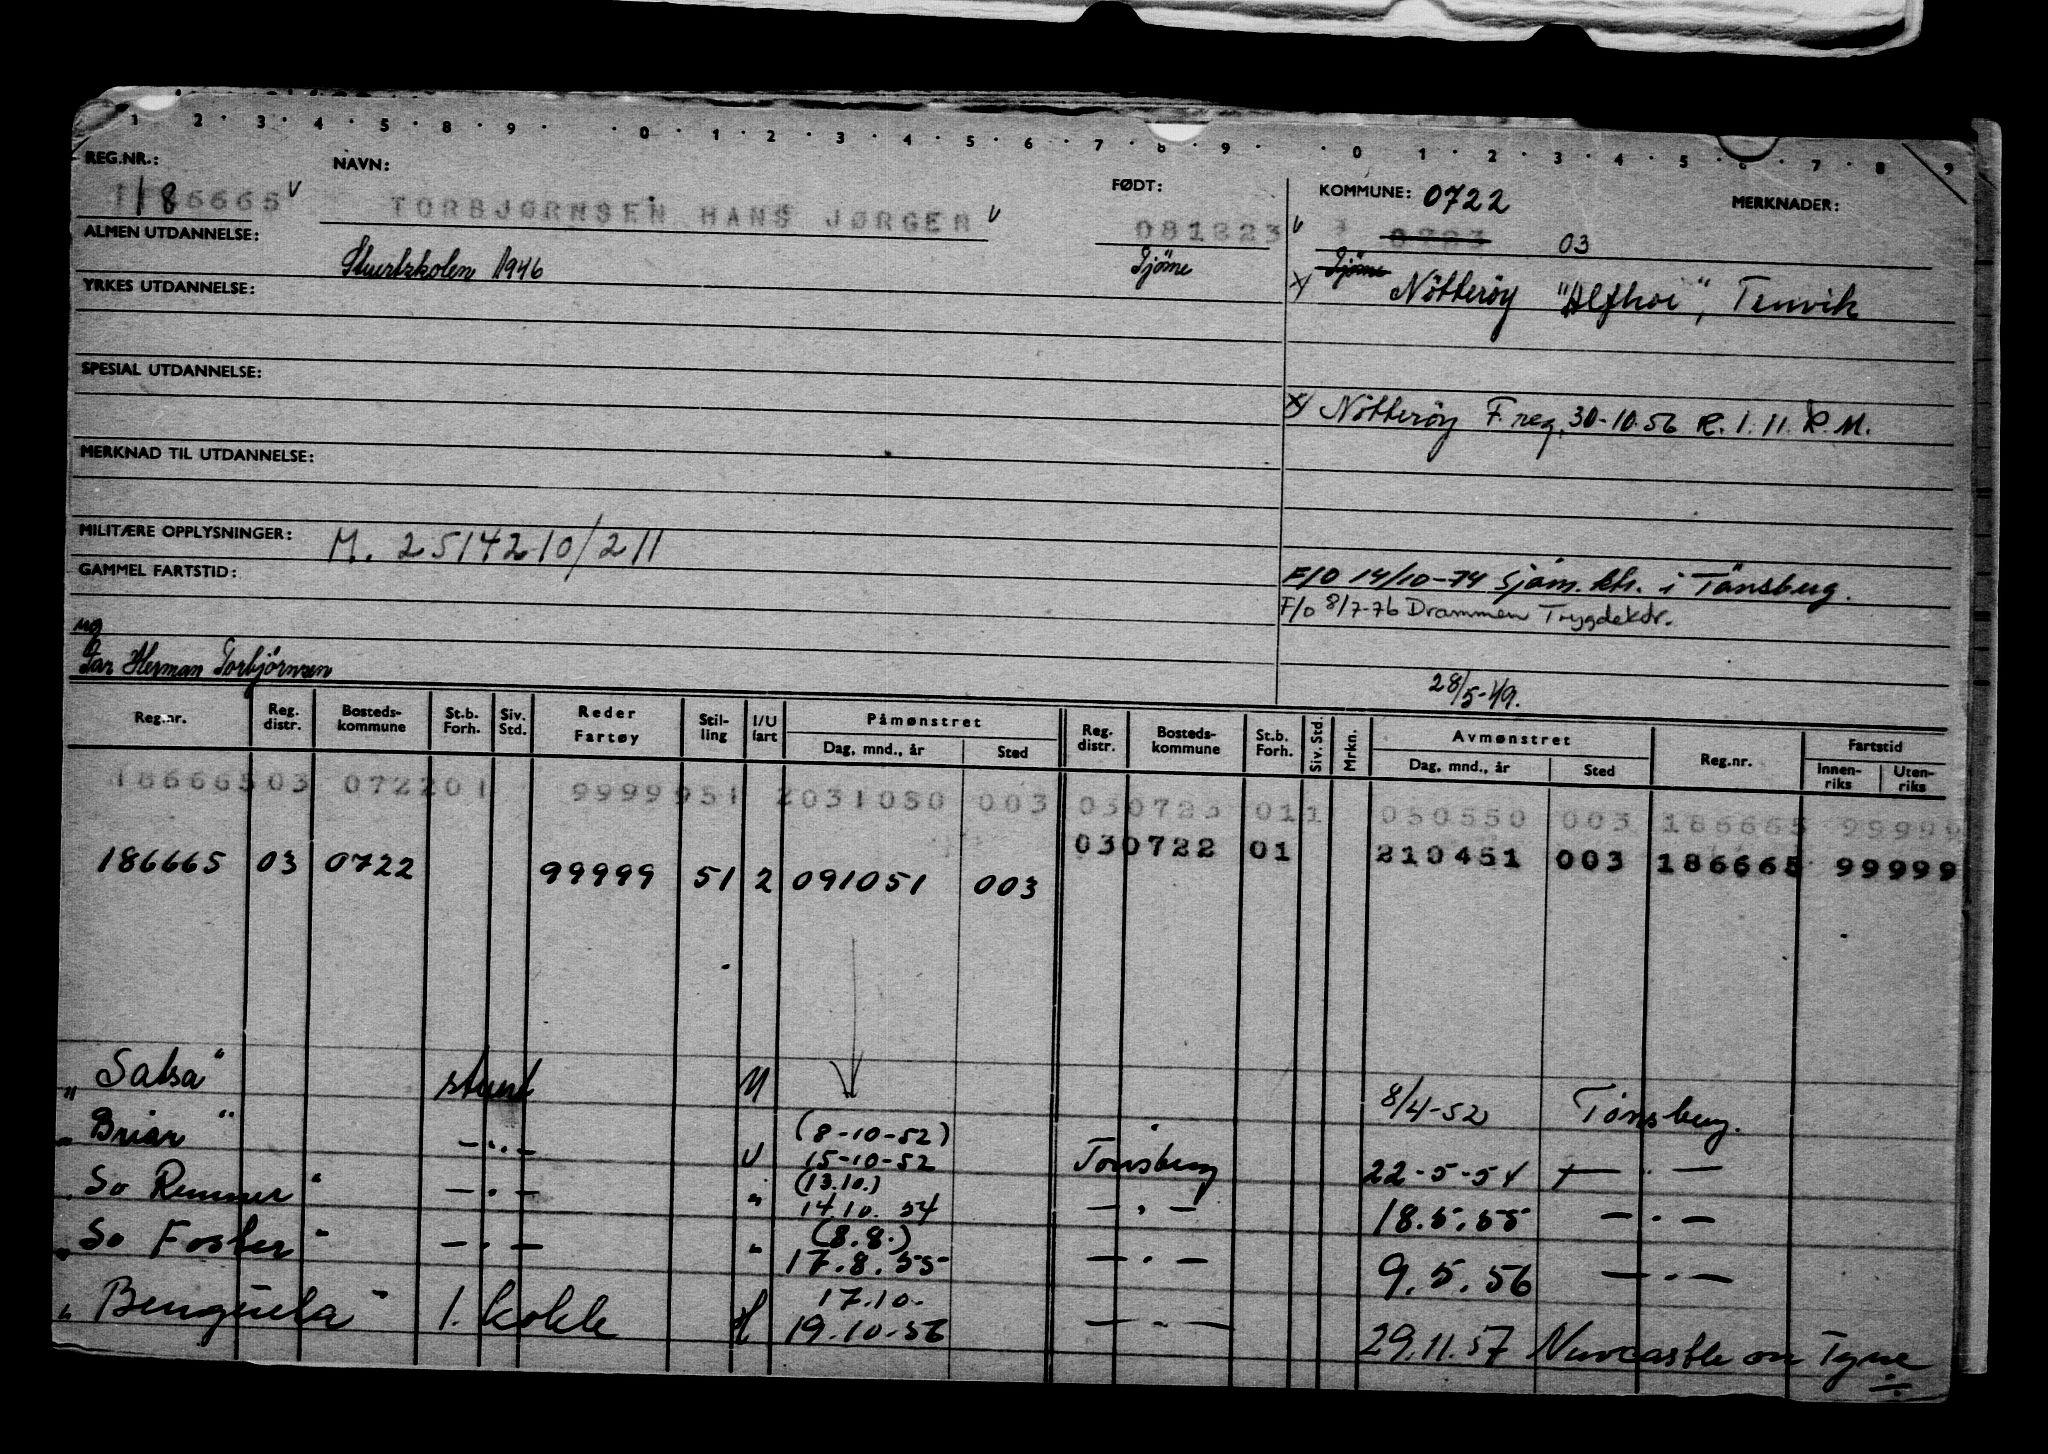 1 2 3 4 5 8 9 0 1 2 3 4 5 6 7 8 9 0 1 2 3 4 5 6 7 8 9
REG.NR.: NAVN: FØDT: KOMMUNE: 0722 MERKNADER:
186665 v TORBJØRNSEN HANS JØRGEN v 081823 v 0723 03
ALMEN UTDANNELSE: Stuertskolen 1946 Tjøme Tjöme
x) Nötteröy "Alfhoi", Tenvik
YRKES UTDANNELSE:
SPESIAL UTDANNELSE:
x) Nötteröy F.reg. 30-10.56 R. 1. 11. R.M.
MERKNAD TIL UTDANNELSE:
MILITÆRE OPPLYSNINGER: M. 2514210/211
GAMMEL FARTSTID: F/O 14/10-74 Sjøm.ktr. i Tönsberg.
F/o 8/7-76 Drammen Trygdektr.
ug
Far Herman Torbjörnsen
28/5-49.
Reg.nr. Reg. distr. Bosteds-kommune St.b. Forh. Siv. Std. Reder Fartøy Stil-ling I/U fart Påmønstret Dag, mnd., år Sted Reg. distr. Bosteds-kommune St.b. Forh. Siv. Std. Mrkn. Avmønstret Dag, mnd., år Sted Reg.nr. Fartstid Innen-riks Uten-riks
186665 03 0722 01 99999 51 2 031050 003 03 0723 01 1 050550 003 186665 99999
03 0722 01 210451 003 186665 99999
186665 03 0722 99999 51 2 091051 003
"Salsa" stuert U 8/4-52 Tönsberg.
"Briar" -..- U (8-10-52) 15-10-52 Tönsberg 22-5-54 - . -
"So Renner" - . - " (13.10.) 14.10. 54 - . - 18.5.55 - . -
"So Foster" - . - " (8.8.) 17.8.55 - . - 9.5.56 - . -
"Benguela" 1. kokk 17.10. 19.10-56 - . - 29.11.57 Newcastle on Tyne